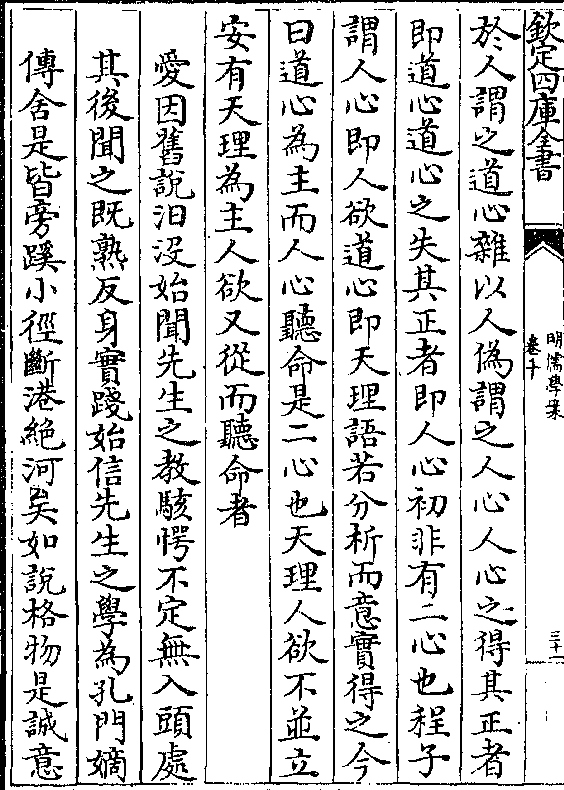 欽定四庫全書
明儒學案
卷十
三十一
於人謂之道心雜以人偽謂之人心人心之得其正者
即道心道心之失其正者即人心初非有二心也程子
謂人心即人欲道心即天理語若分析而意實得之今
曰道心為主而人心聽命是二心也天理人欲不並立
安有天理為主人欲又從而聽命者
愛因舊說汨没始聞先生之教駭愕不定無入頭處
其後聞之既熟反身實踐始信先生之學為孔門嫡
傳舍是皆旁蹊小徑斷港絶河矣如說格物是誠意